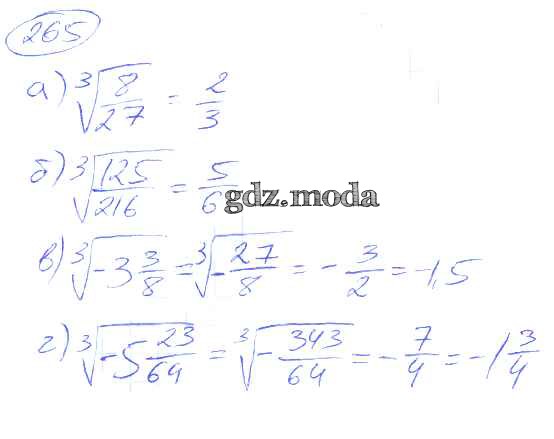 265
а) ∛(8/27) = 2/3
б) ∛(125/216) = 5/6
gdz.moda
в) ∛(-3 3/8) = ∛(-27/8) = -3/2 = -1,5
г) ∛(-5 23/64) = ∛(-343/64) = -7/4 = -1 3/4